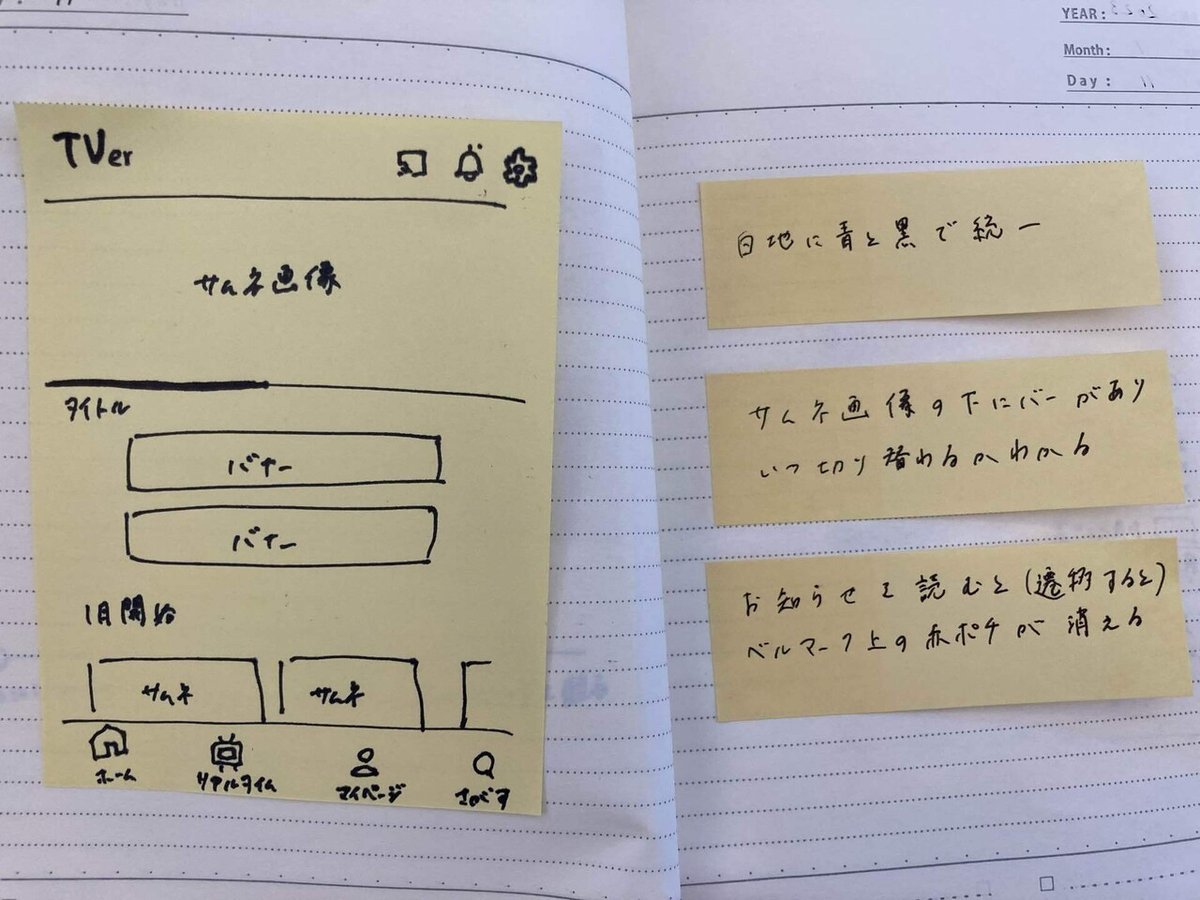 TVer
サムネ画像
タイトル
バナー
バナー
1月開始
サムネ
サムネ
ホーム
リアルタイム
マイページ
さがす
YEAR: 2023
Month: 1
Day: 11
白地に青と黒で統一
サムネ画像の下にバーがあり
いつ切り替わるかわかる
お知らせを読むと(遷移すると)
ベルマーク上の赤ポチが消える